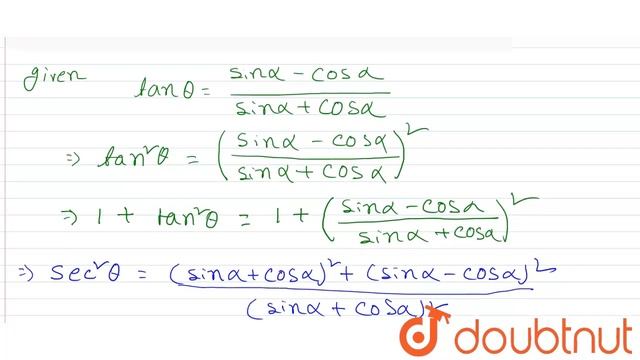 given tanθ = (sinα - cosα)/(sinα + cosα)
⇒ tan²θ = ((sinα - cosα)/(sinα + cosα))²
⇒ 1 + tan²θ = 1 + ((sinα - cosα)/(sinα + cosα))²
⇒ sec²θ = ((sinα + cosα)² + (sinα - cosα)²)/(sinα + cosα)²
doubtnut